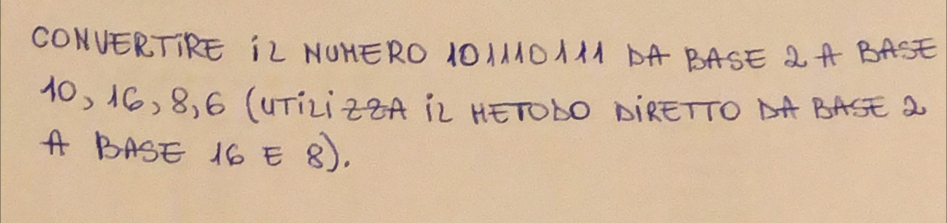 CONVERTIRE IL NUMERO 101110111 DA BASE 2 A BASE
10, 16, 8, 6 (UTILIZZA IL METODO DIRETTO DA BASE 2
A BASE 16 E 8).